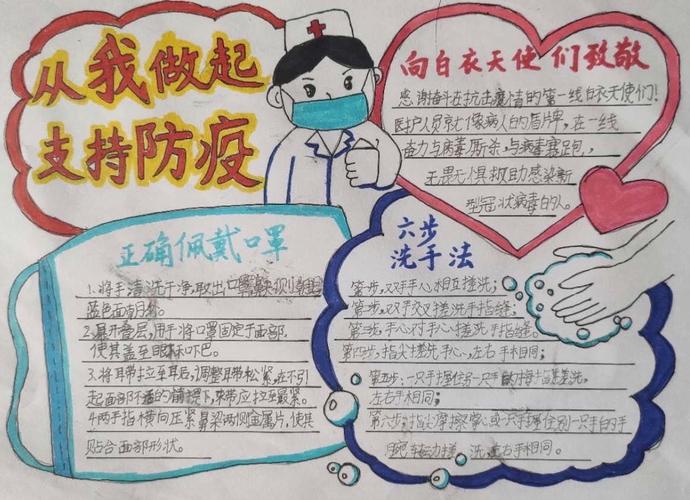 从我做起
支持防疫
向白衣天使们致敬
感谢奋斗在抗击疫情的第一线白衣天使们!
医护人员就像病人的盾牌,在一线
奋力与病毒厮杀,与病毒赛跑,
无畏无惧救助感染新
型冠状病毒的人。
正确佩戴口罩
1.将手清洗干净,取出口罩
蓝色面朝外。
2.展开叠层,用手将口罩固定于面部,
使其盖至
3.将耳带拉至耳后,调整耳带松紧,在不引
起面部不适的前提下,束带应拉至最紧。
4.两手指横向压紧鼻梁两侧金属片,使其
贴合面部形状。
六步
洗手法
第一步,双手手心相互搓洗;
第二步,双手交叉搓洗手指缝;
第三步,手心对手心搓洗手指缝;
第四步:指尖搓洗手心,左右手相同;
第五步:一只手握住另一只手
左右手相同;
第六步:指尖摩擦掌心或一只手握住另一只手的手
腕转动搓洗左右手相同。